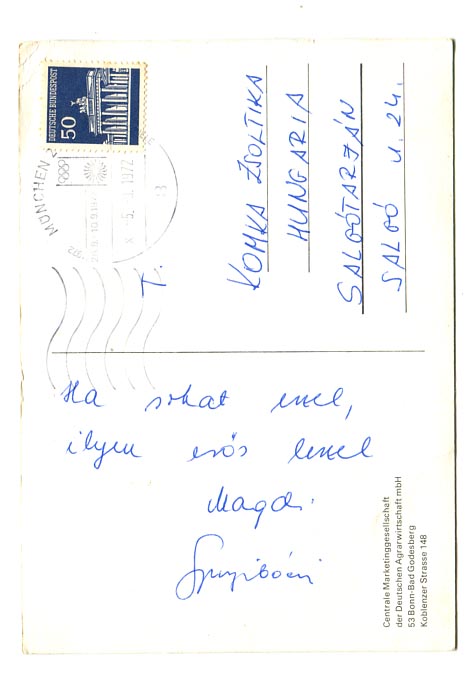 DEUTSCHE BUNDESPOST
50
MÜNCHEN
1972
T.
KOMKA ZSOLTIKA
HUNGARIA
SALGÓTARJÁN
SALGÓ u. 24.
Ha sokat eszel,
ilyen erős leszel
Magdi
Centrale Marketinggesellschaft
der Deutschen Agrarwirtschaft mbH
53 Bonn-Bad Godesberg
Koblenzer Strasse 148